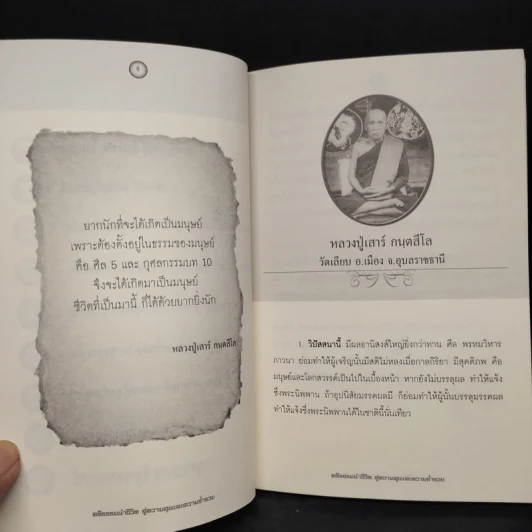 ยากนักที่จะได้เกิดเป็นมนุษย์
เพราะต้องตั้งอยู่ในธรรมของมนุษย์
คือ ศีล 5 และ กุศลกรรมบท 10
จึงจะได้เกิดมาเป็นมนุษย์
ชีวิตที่เป็นมานี้ ก็ได้ด้วยยากยิ่งนัก
หลวงปู่เสาร์ กนฺตสีโล
คติธรรมนำชีวิต สู่ความสุขและความร่ำรวย
หลวงปู่เสาร์ กนฺตสีโล
วัดเลียบ อ.เมือง จ.อุบลราชธานี
1. วิปัสสนานี้ มีผลอานิสงส์ใหญ่ยิ่งกว่าทาน ศีล พรหมวิหาร
ภาวนา ย่อมทำให้ผู้เจริญนั้นมีสติไม่หลงเมื่อกาลกิริยา มีสุคติภพ คือ
มนุษย์และโลกสวรรค์เป็นไปในเบื้องหน้า หากยังไม่บรรลุผล ทำให้แจ้ง
ซึ่งพระนิพพาน ถ้าอุปนิสัยมรรคผลมี ก็ย่อมทำให้ผู้นั้นบรรลุมรรคผล
ทำให้แจ้งซึ่งพระนิพพานได้ในชาตินี้นั่นเทียว
คติธรรมนำชีวิต สู่ความสุขและความร่ำรวย